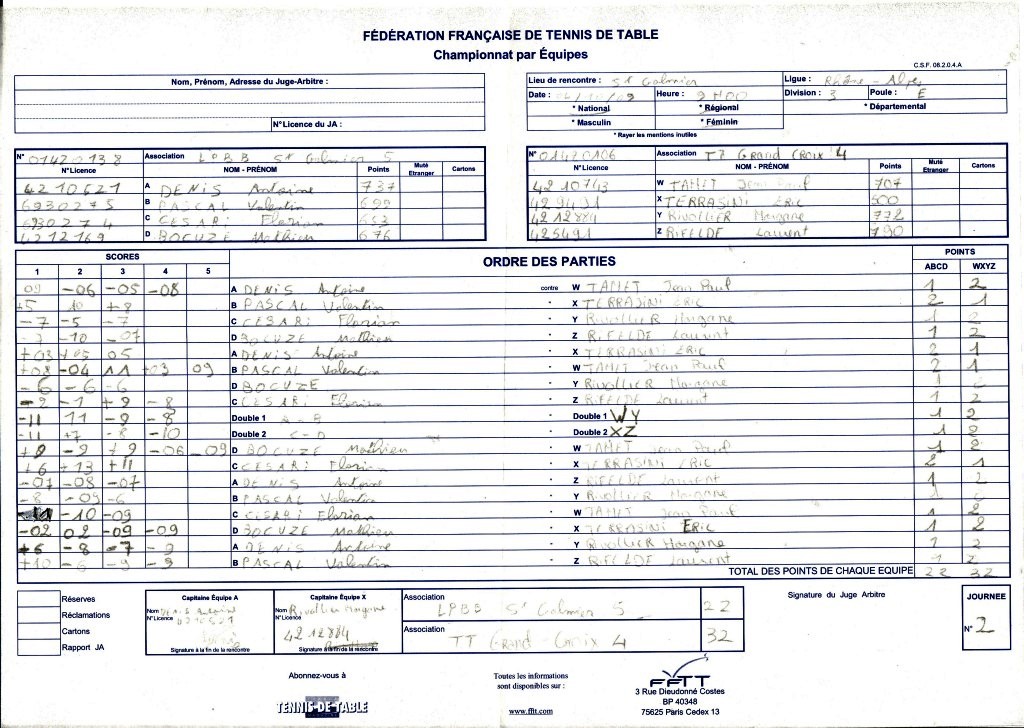 FÉDÉRATION FRANÇAISE DE TENNIS DE TABLE
Championnat par Équipes
C.S.F. 06.2.0.4.A
Nom, Prénom, Adresse du Juge-Arbitre :
N°Licence du JA :
Lieu de rencontre : St Galmier Ligue : Rhône - Alpes
Date : /09 Heure : 9H00 Division : 3 Poule : E
* National * Régional * Départemental
* Masculin * Féminin
* Rayer les mentions inutiles
N° 01420138 Association LPBB St Galmier 5
N°Licence NOM - PRÉNOM Points Muté Etranger Cartons
4210621 A DENIS Antoine 737
6930275 B PASCAL Valentin 699
6930274 C CESARI Florian 653
4212169 D BOCUZE Mathieu 676
N° 01420106 Association TT Grand Croix 4
N°Licence NOM - PRÉNOM Points Muté Etranger Cartons
4210743 W TAMET Jean Paul 707
429491 X TERRASINI ERIC 500
4212884 Y RIVOLLIER Morgane 772
425491 Z RIFELDE Laurent 790
SCORES ORDRE DES PARTIES POINTS
1 2 3 4 5 ABCD WXYZ
09 -06 -05 -08 A DENIS Antoine contre W TAMET Jean Paul 1 2
+5 10 +8 B PASCAL Valentin X TERRASINI ERIC 2 1
-7 -5 -7 C CESARI Florian Y Rivollier Morgane 1 2
-7 -10 -07 D BOCUZE Mathieu Z RIFELDE Laurent 1 2
+03 +05 05 A DENIS Antoine X TERRASINI ERIC 2 1
+08 -04 11 +03 09 B PASCAL Valentin W TAMET Jean Paul 2 1
-6 -6 -6 D BOCUZE Y Rivollier Morgane 1
-2 -7 +9 -8 C CESARI Florian Z RIFELDE Laurent 1 2
-11 11 -9 -8 Double 1 A - B Double 1 WY 1 2
-11 +7 -8 -10 Double 2 C - D Double 2 XZ 1 2
+9 -9 +9 -06 -09 D BOCUZE Mathieu W TAMET Jean Paul 1 2
+6 +13 +11 C CESARI Florian X TERRASINI ERIC 2 1
-07 -08 -07 A DENIS Antoine Z RIFELDE Laurent 1 2
-8 -09 -6 B PASCAL Valentin Y RIVOLLIER Morgane 1
-10 -09 C CESARI Florian W TAMET Jean Paul 1 2
-02 02 -09 -09 D BOCUZE Mathieu X TERRASINI ERIC 1 2
+6 -8 -7 -9 A DENIS Antoine Y RIVOLLIER Morgane 1 2
+10 -6 -9 -9 B PASCAL Valentin Z RIFELDE Laurent 1 2
TOTAL DES POINTS DE CHAQUE EQUIPE 22 32
Réserves
Réclamations
Cartons
Rapport JA
Capitaine Équipe A
Nom DENIS Antoine
N°Licence 4210621
Signature à la fin de la rencontre
Capitaine Équipe X
Nom Rivollier Morgane
N°Licence 4212884
Signature à la fin de la rencontre
Association LPBB St Galmier 5 22
Association TT Grand Croix 4 32
Signature du Juge Arbitre
JOURNEE
N° 2
Abonnez-vous à
TENNIS-DE-TABLE
Toutes les informations
sont disponibles sur :
www.fftt.com
FFTT
3 Rue Dieudonné Costes
BP 40348
75625 Paris Cedex 13